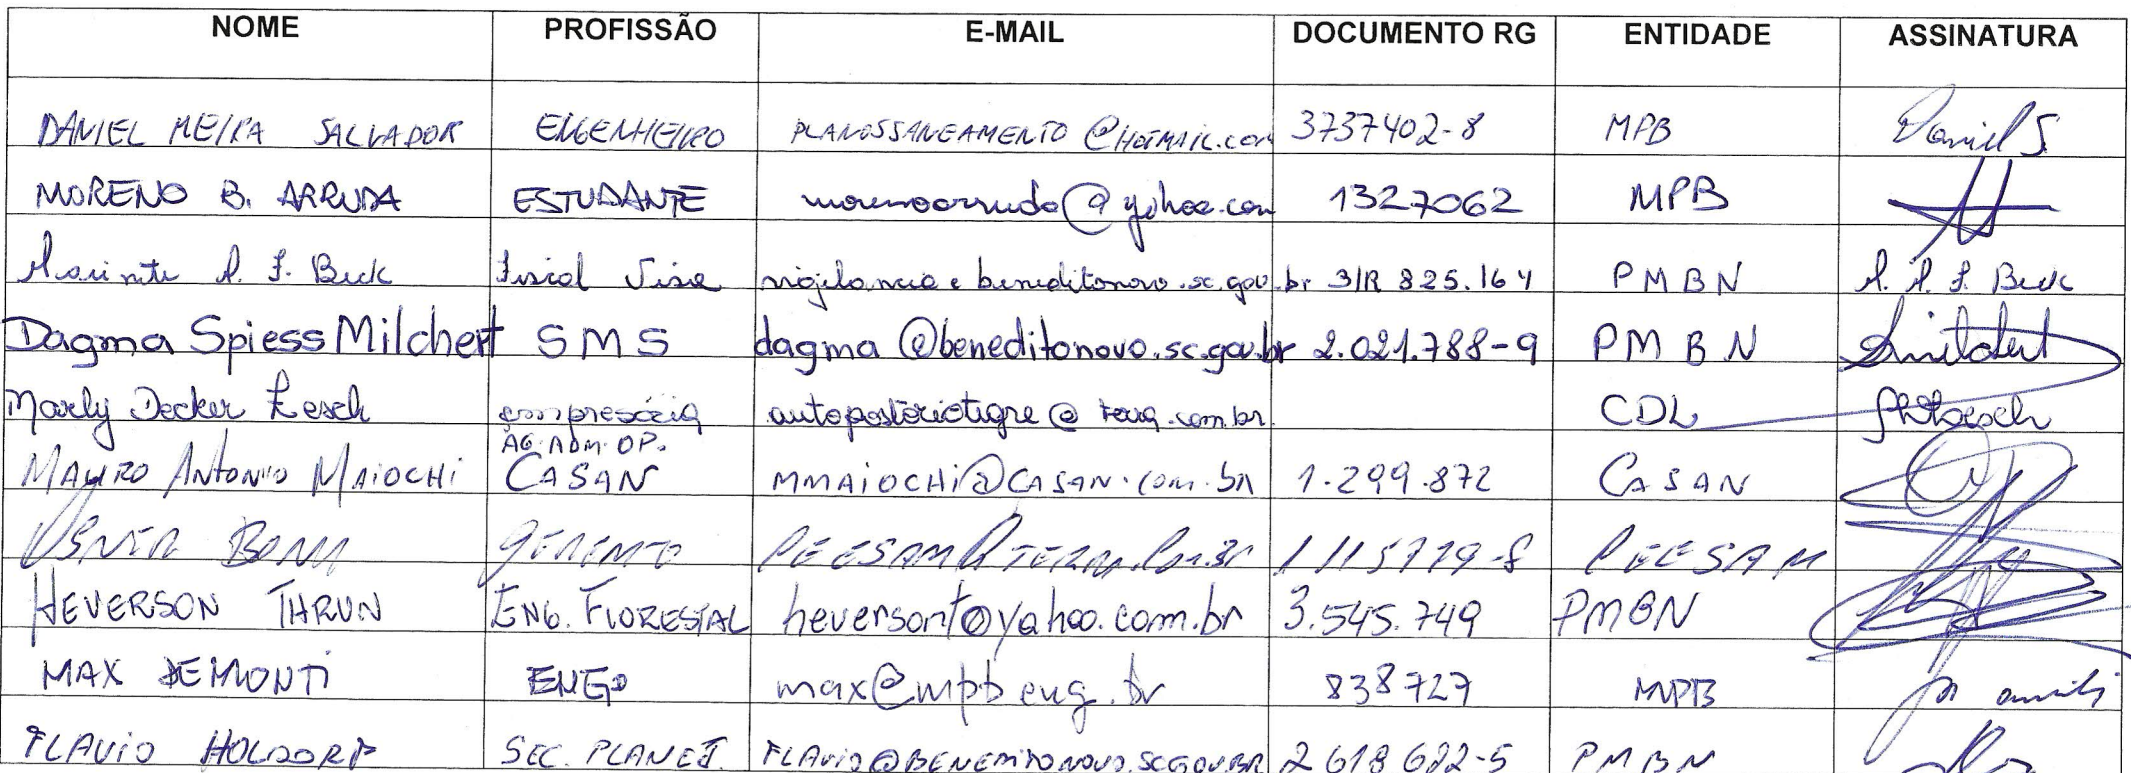 NOME PROFISSÃO E-MAIL DOCUMENTO RG ENTIDADE ASSINATURA
DANIEL MEIRA SALVADOR ENGENHEIRO PLANOSSANEAMENTO@HOTMAIL.com 3737402-8 MPB Daniel S.
MORENO B. ARRUDA ESTUDANTE morenoarruda@yahoo.com 1327062 MPB
A. F. Beck Fiscal Visa vigilancia e beneditonovo.sc.gov.br 3/R 825.164 PMBN A. A. F. Beck
Dagma Spiess Milchert SMS dagma@beneditonovo.sc.gov.br 2.021.788-9 PMBN
Marly Decker empresária autopostoriotigre@terra.com.br CDL
AG. ADM. OP.
MAURO ANTONIO MAIOCHI CASAN MMAIOCHI@CASAN.COM.BR 1.299.872 CASAN
GERENTE
HEVERSON THRUN ENG. FLORESTAL heversont@yahoo.com.br 3.545.749 PMBN
MAX DEMONTI ENGº max@mpb eng.br 838727 MPB
FLAVIO HOLDORF SEC. PLANEJ. FLAVIO@BENEDITONOVO.SC.GOV.BR 2618622-5 PMBN